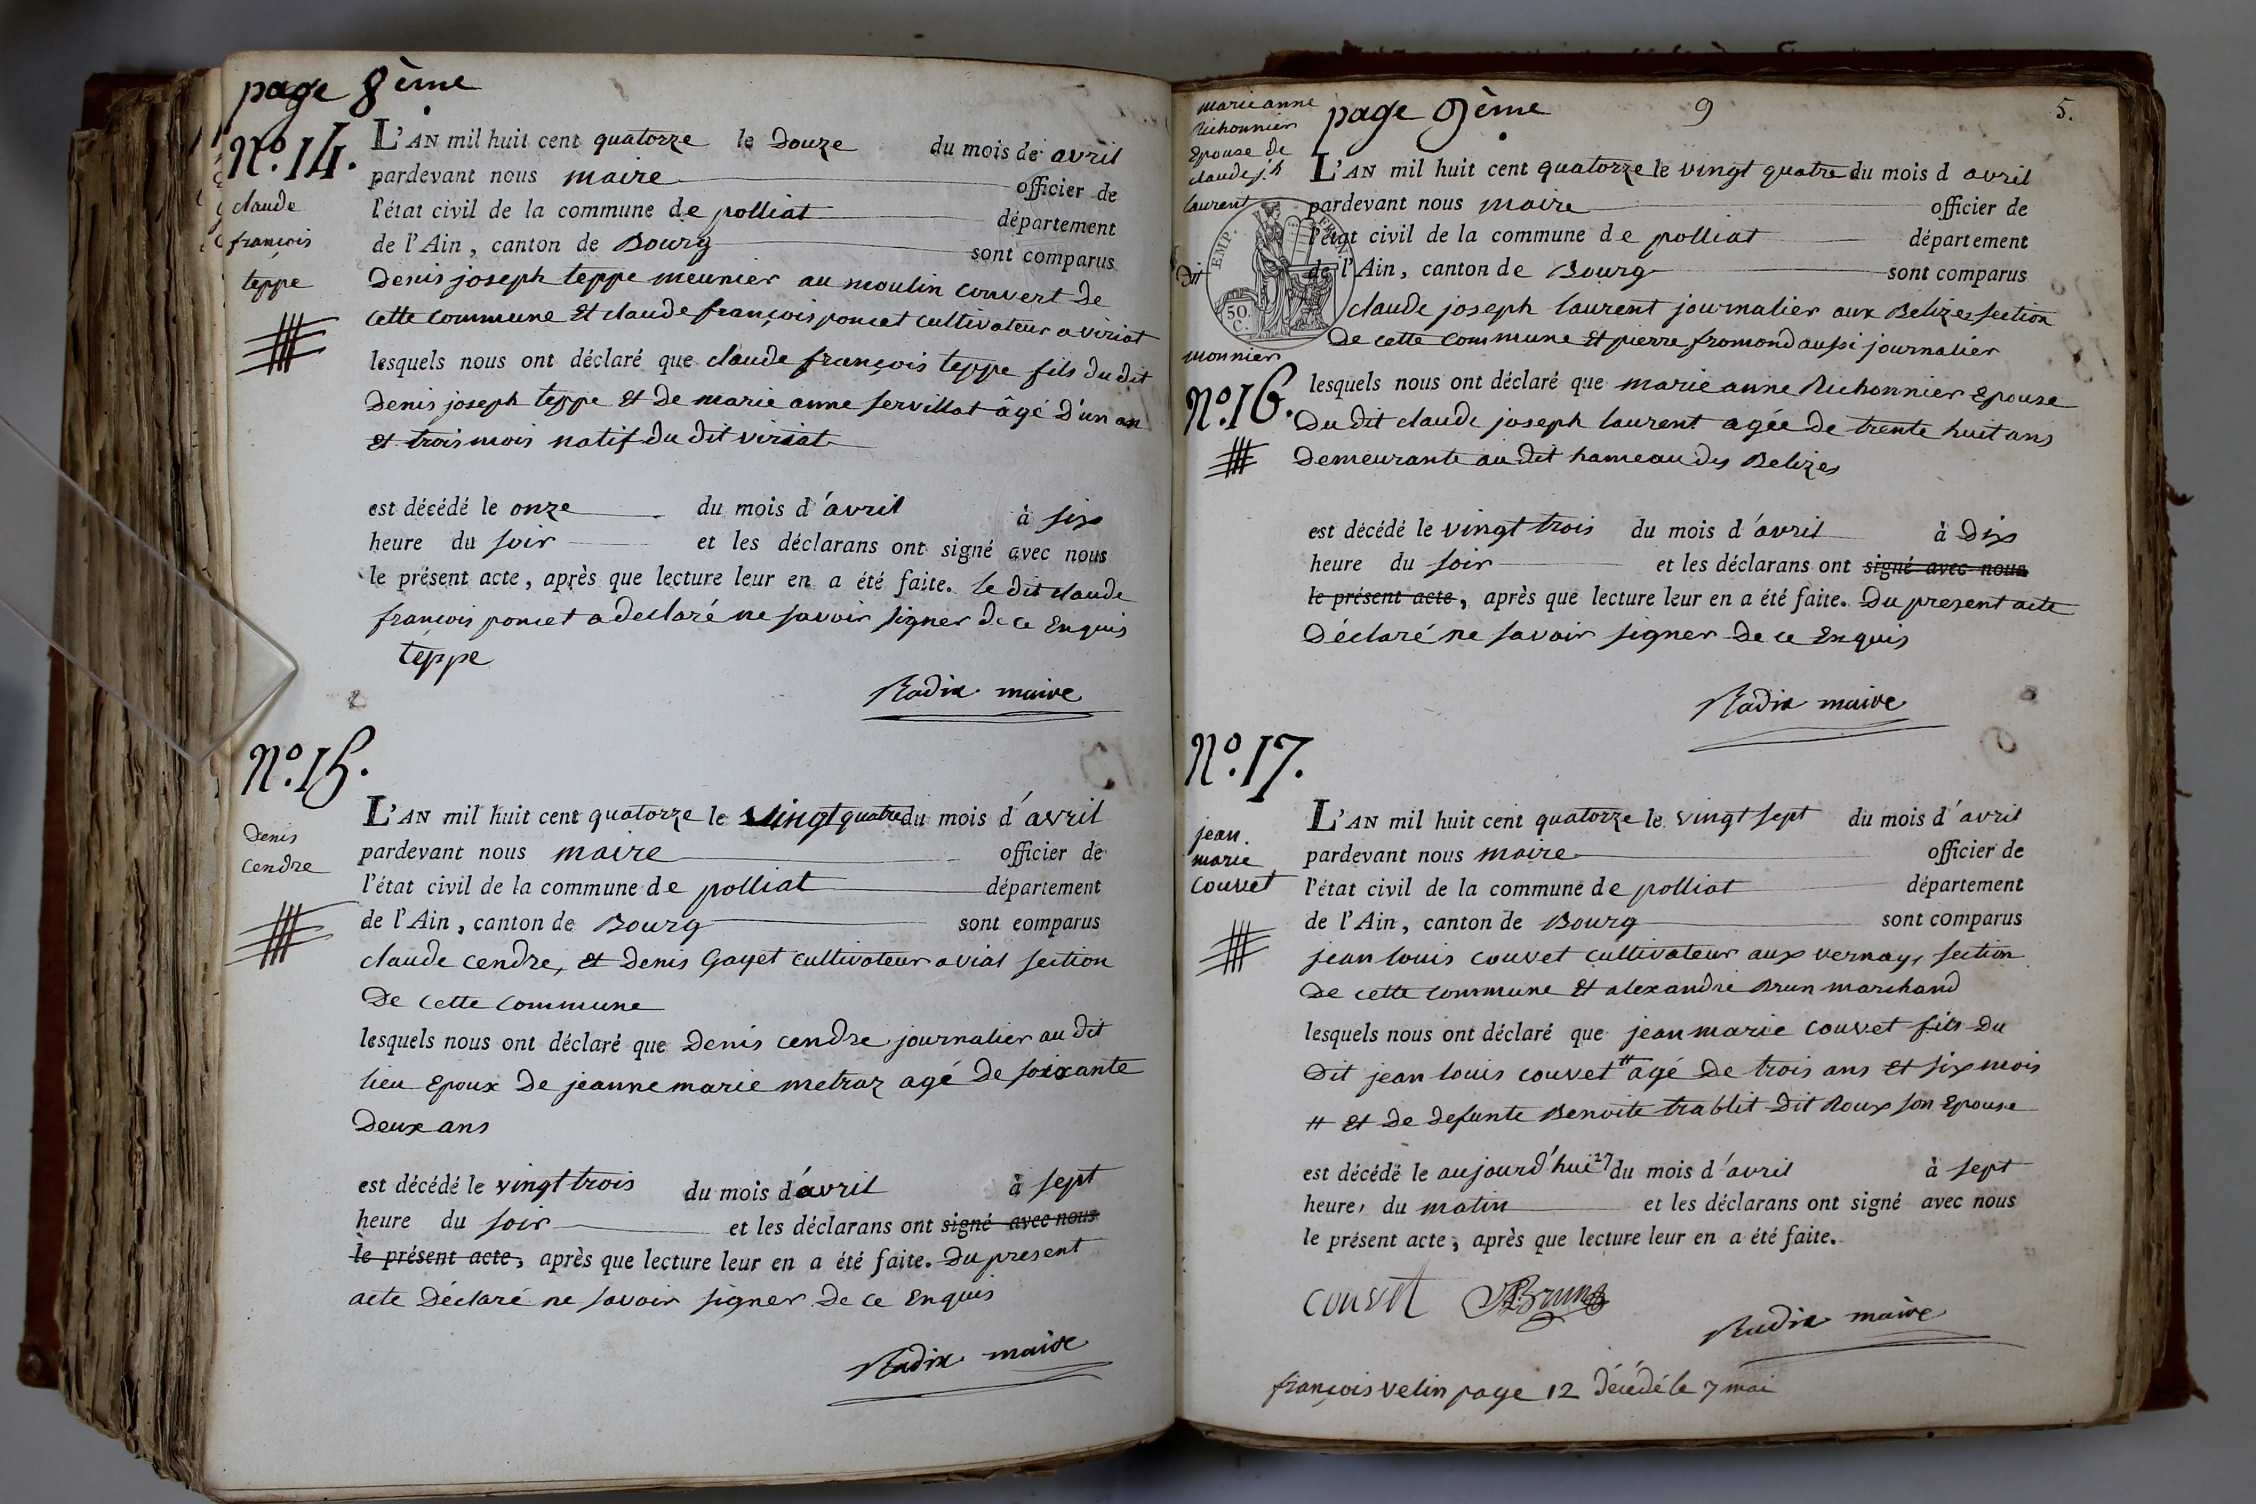 page 8ème
N.º 14.
claude
françois
teppe
L'AN mil huit cent quatorze le Douze du mois de avril
pardevant nous maire officier de
l'état civil de la commune de polliat département
de l'Ain, canton de Bourg sont comparus
Denis joseph teppe meunier au moulin couvert De
cette commune Et claude françois poncet cultivateur a viriat
lesquels nous ont déclaré que claude françois teppe fils du dit
Denis joseph teppe Et De marie anne servillat âgé D'un an
Et trois mois natif du dit viriat
est décédé le onze du mois d'avril à six
heure du soir et les déclarans ont signé avec nous
le présent acte, après que lecture leur en a été faite. le dit claude
françois poncet a declaré ne savoir signer de ce Enquis
teppe
Radix maire
N.º 15.
Denis
cendre
L'AN mil huit cent quatorze le vingt quatre du mois d'avril
pardevant nous maire officier de
l'état civil de la commune de polliat département
de l'Ain, canton de Bourg sont comparus
claude cendre, Et Denis Gayet cultivateur a vial section
De cette commune
lesquels nous ont déclaré que Denis cendre journalier au dit
lieu Epoux De jeanne marie metraz agé De soixante
Deux ans
est décédé le vingt trois du mois d'avril à sept
heure du soir et les déclarans ont signé avec nous
le présent acte, après que lecture leur en a été faite. Du present
acte Déclaré ne savoir signer De ce Enquis
Radix maire
marie anne
Richonnier
Epouse de
claude j.h
laurent
Dit
monnier
page 9ème 9 5.
EMP.
50.
C.
L'AN mil huit cent quatorze le vingt quatre du mois d avril
pardevant nous maire officier de
l'état civil de la commune de polliat département
de l'Ain, canton de Bourg sont comparus
claude joseph laurent journalier aux Belizes section
De cette commune Et pierre fromond aussi journalier
N.º 16.
lesquels nous ont déclaré que marie anne Richonnier Epouse
Du dit claude joseph laurent agée De trente huit ans
Demeurante au dit hameau des Belizes
est décédé le vingt trois du mois d'avril à Dix
heure du soir et les déclarans ont signé avec nous
le présent acte, après que lecture leur en a été faite. Du present acte
Déclaré ne savoir signer De ce Enquis
Radix maire
N.º 17.
jean
marie
couvet
L'AN mil huit cent quatorze le vingt sept du mois d'avril
pardevant nous maire officier de
l'état civil de la commune de polliat département
de l'Ain, canton de Bourg sont comparus
jean louis couvet cultivateur aux vernays section
De cette commune Et alexandre Brun marchand
lesquels nous ont déclaré que jean marie couvet fils Du
Dit jean louis couvet # agé De trois ans Et six mois
# Et De defunte Benoite trablit Dit Roux son Epouse
est décédé le aujourd'hui 27 du mois d'avril à sept
heure, du matin et les déclarans ont signé avec nous
le présent acte, après que lecture leur en a été faite.
couvet ABrun
Radix maire
françois velin page 12 décédé le 7 mai